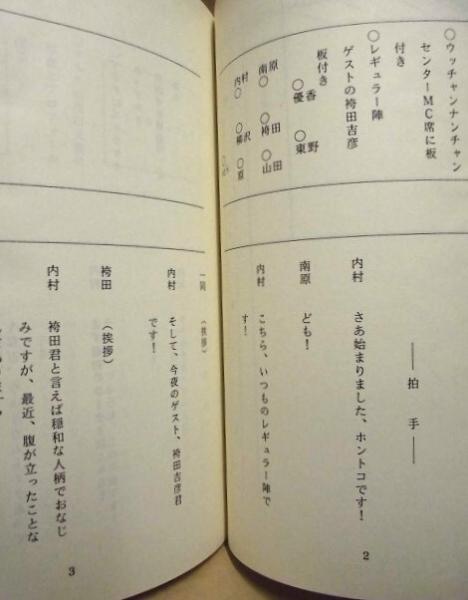 ○ウッチャンナンチャン
センターMC席に板
付き
○レギュラー陣
ゲストの袴田吉彦
板付き
優香
○
東野
○
南原
○
袴田
○
山田
○
内村
○
柳沢
○
原
○
――拍手――
内村 さあ始まりました、ホントコです!
南原 ども!
内村 こちら、いつものレギュラー陣で
す!
2
一同 (挨拶)
内村 そして、今夜のゲスト、袴田吉彦君
です!
袴田 (挨拶)
内村 袴田君と言えば穏和な人柄でおなじ
みですが、最近、腹が立ったことな
3